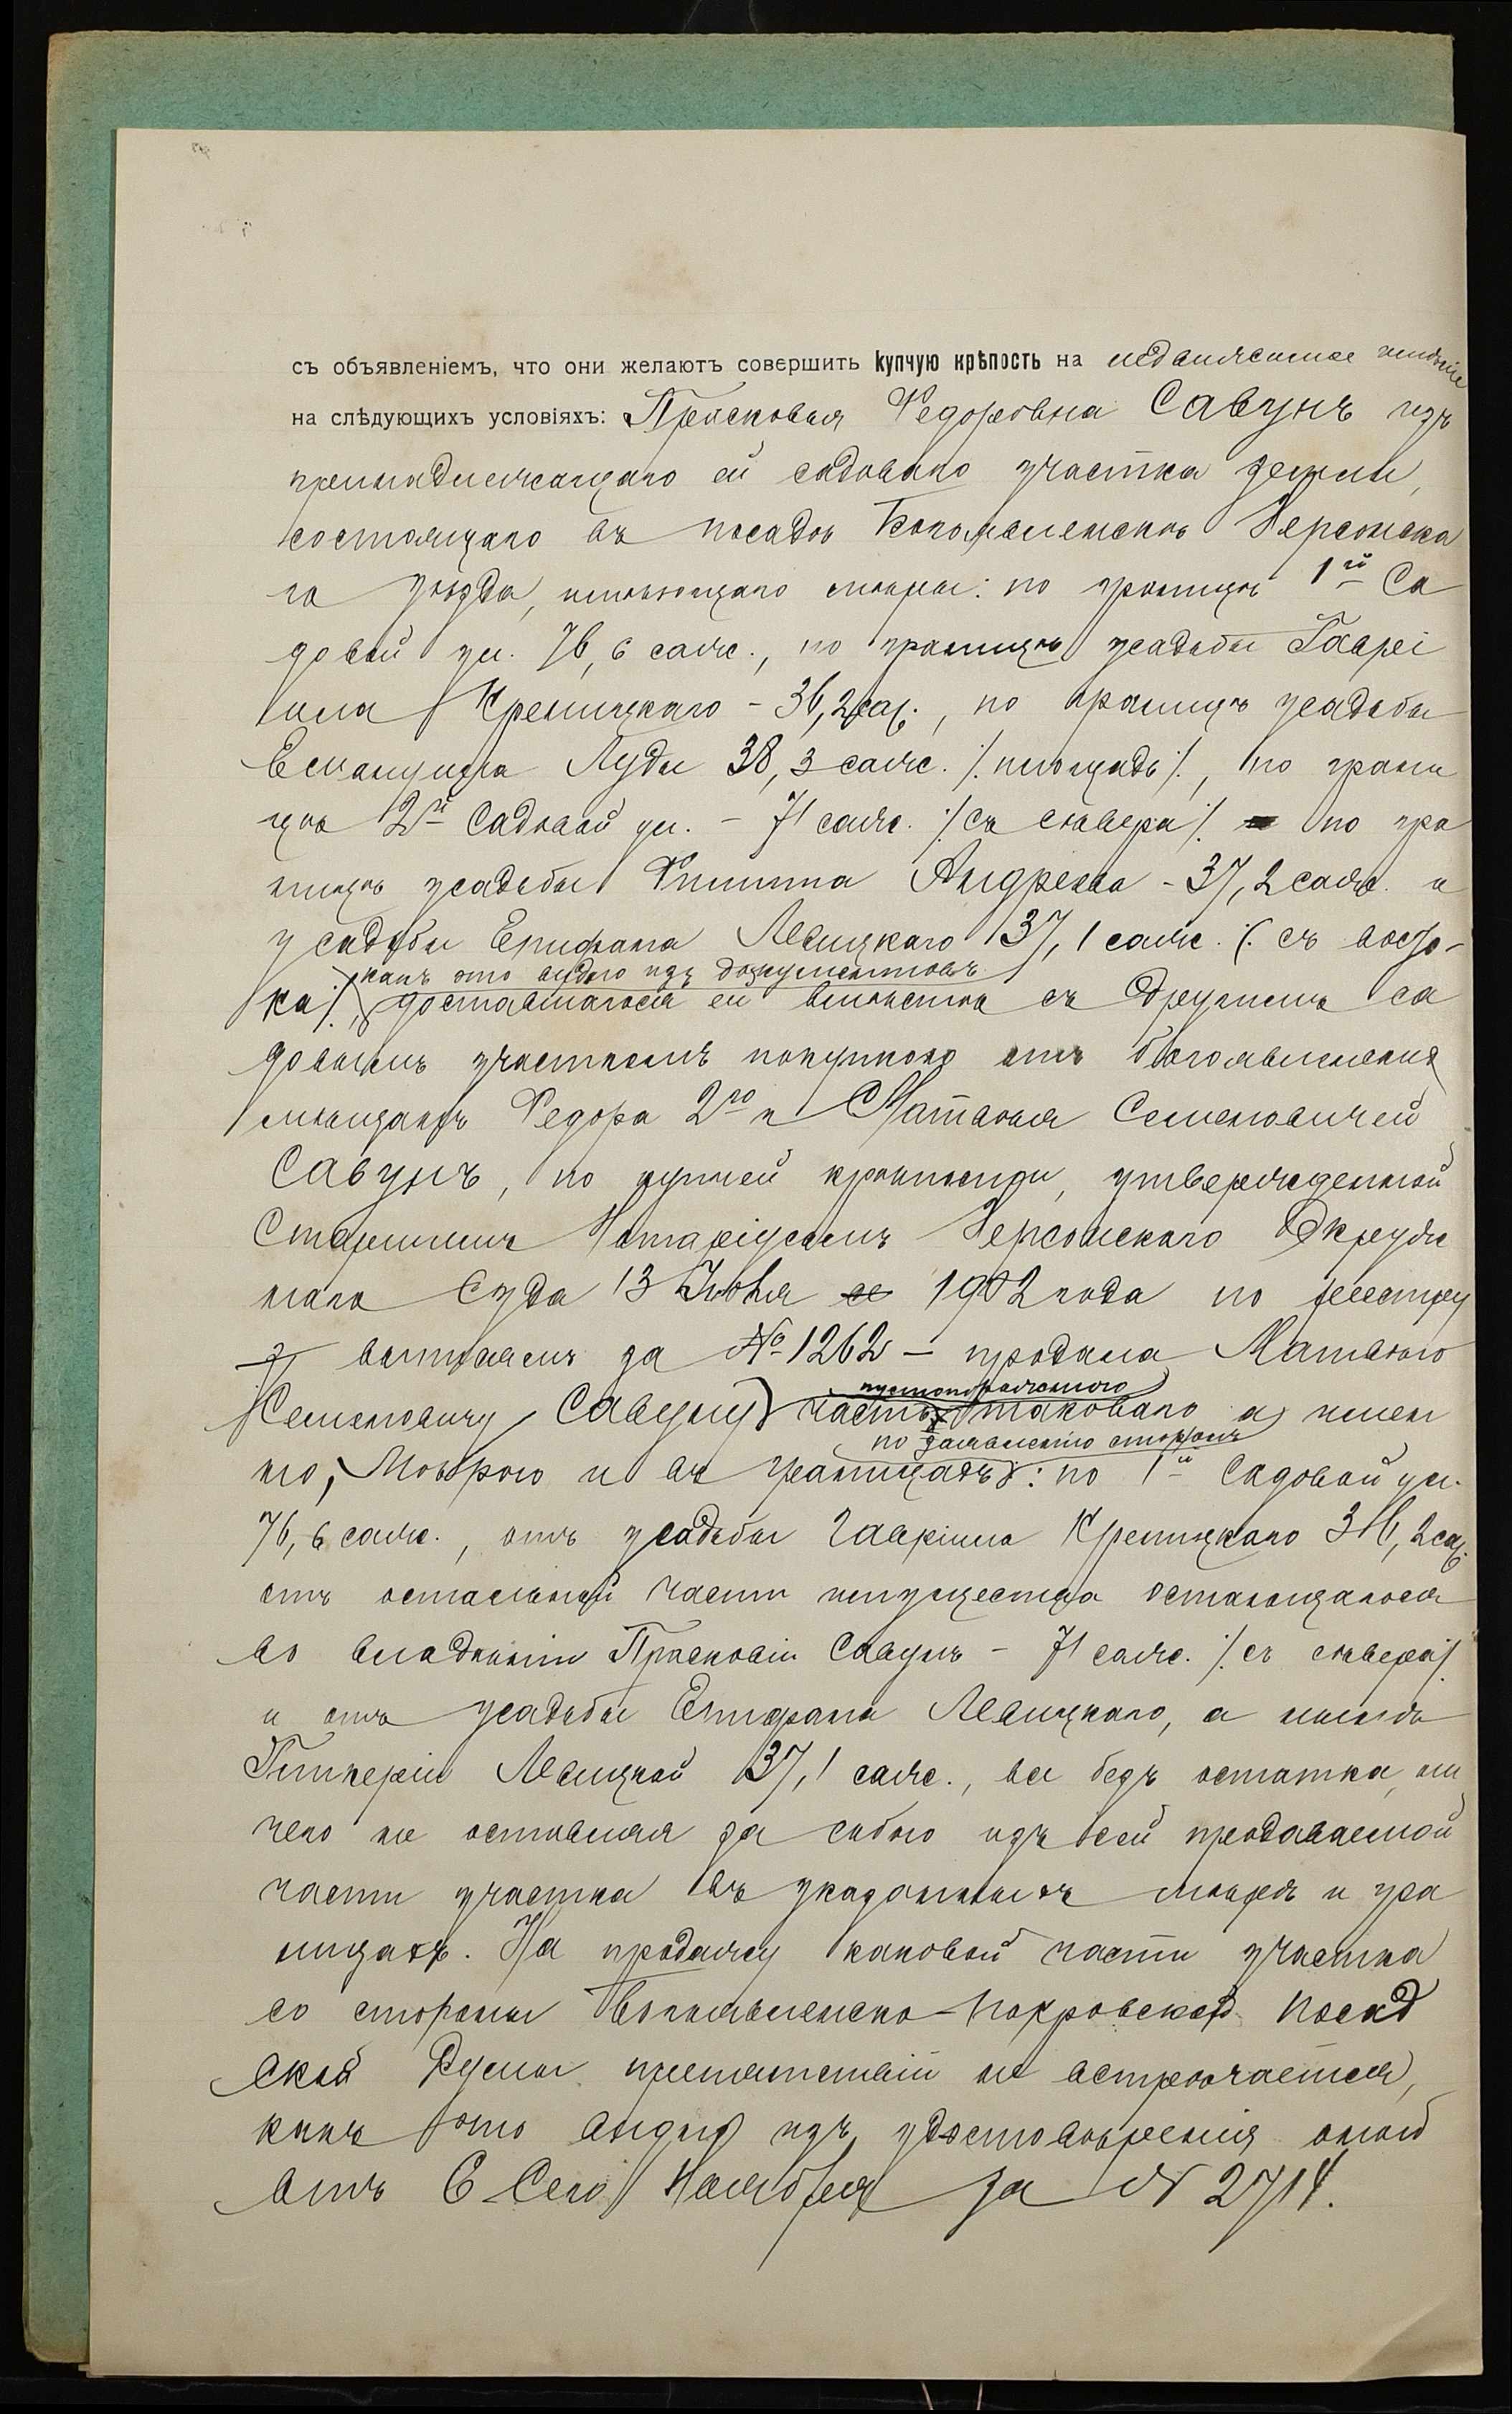 съ объявленіемъ, что они желаютъ совершить купчую крѣпость на недвижимое имѣніе
на слѣдующихъ условіяхъ: Прасковья Федоровна Савунъ изъ
принадлежащаго ей садоваго участка земли,
состоящаго въ посадѣ Богоявленскѣ Херсонска
го уѣзда, имѣющаго мѣры: по границѣ 1й Са
довой ул. 76,6 саж., по границѣ усадьбы Гаврі
ила Креницкаго - 36,2 саж., по границѣ усадьбы
Емануила Луды 38,3 саж. /: площадь :/, по грани
цѣ 2й Садовой ул. - 71 саж. /: съ сѣвера :/ по гра
ницѣ усадьбы Филиппа Андреева - 37,2 саж. и
усадьбы Епифана Левицкаго 37,1 саж. /: съ восто-
какъ это видно изъ документовъ
ка :/, доставшагося ей вмѣстѣ съ другимъ са
довымъ участкомъ покупкою отъ богоявленскихъ
мѣщанъ Федора 2го и Матвѣя Семеновичей
Савунъ, по купчей крѣпости, утвержденной
Старшимъ Нотаріусомъ Херсонскаго Окруж
наго Суда 13 Іюня 1902 года по реестру
за № 1262 — продала Матвѣю
пустопорожняго
Семеновичу Савуну часть таковаго а имен
по заявленію сторонъ
но, мѣрою и въ границахъ: по 1й Садовой ул.
76,6 саж., отъ усадьбы Гавріила Креницкаго 36,2 саж.
отъ остальной части имущества остающагося
во владѣніи Прасковіи Савунъ - 71 саж. /: съ сѣвера :/
и отъ усадьбы Епифана Левицкаго, а нынѣ
Гликеріи Левицкой 37,1 саж., все безъ остатка, ни
чего не оставляя за собою изъ сей продаваемой
части участка въ указанныхъ мѣрѣ и гра
ницахъ. На продажу каковой части участка
со стороны Богоявленско-Покровской Посад
ской Думы препятствій не встрѣчается,
какъ это видно изъ удостовѣренія оной
отъ 6 Сего Ноября за № 2714.